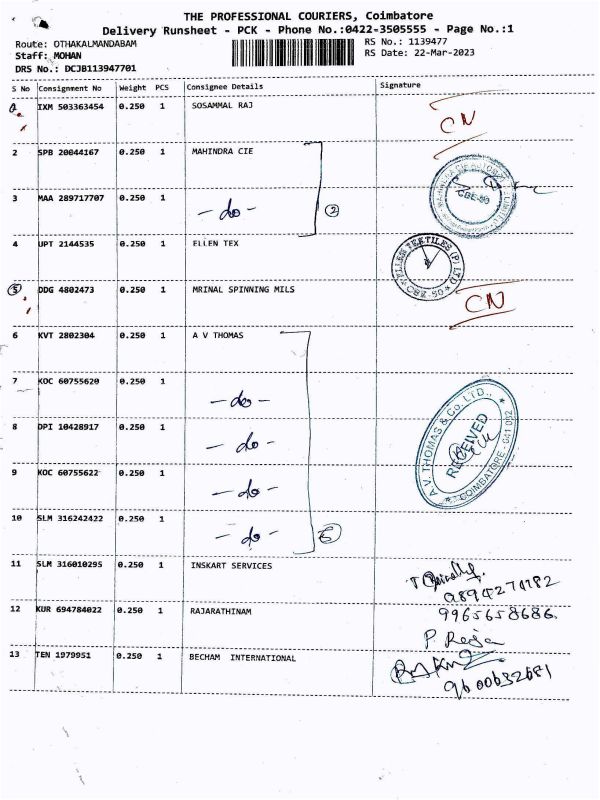 THE PROFESSIONAL COURIERS, Coimbatore
Delivery Runsheet - PCK - Phone No.:0422-3505555 - Page No.:1
Route: OTHAKALMANDABAM
RS No.: 1139477
Staff: MOHAN
RS Date: 22-Mar-2023
DRS No.: DCJB113947701
S No Consignment No Weight PCS Consignee Details Signature
IXM 503363454 0.250 1 SOSAMMAL RAJ CN
2 SPB 20044167 0.250 1 MAHINDRA CIE
3 MAA 289717707 0.250 1 - do - 2
CBE-50
4 UPT 2144535 0.250 1 ELLEN TEX
ELLEN TEXTILES (P) LTD CBE-50
5 DDG 4802473 0.250 1 MRINAL SPINNING MILS CN
6 KVT 2802304 0.250 1 A V THOMAS
7 KOC 60755620 0.250 1 - do -
8 DPI 10428917 0.250 1 - do -
A.V. THOMAS & Co. LTD., RECEIVED COIMBATORE
9 KOC 60755622 0.250 1 - do -
10 SLM 316242422 0.250 1 - do - 5
11 SLM 316010295 0.250 1 INSKART SERVICES
12 KUR 694784022 0.250 1 RAJARATHINAM 9965658686.
P. Raja
13 TEN 1979951 0.250 1 BECHAM INTERNATIONAL
9600632681